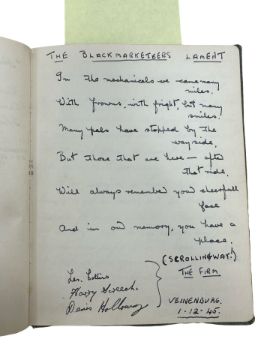 THE BLACKMARKETEERS LAMENT
In the mechanicals we came many
miles.
With frowns, with fright, but many
smiles.
Many pals have stopped by the
wayside.
But those that are here — after
that ride,
Will always remember your cheerfull
face
And in our memory, you have a
place.
(SCROLLINGWAY.)
THE FIRM
Les.
Harry
Denis Holloway
1.12.45.